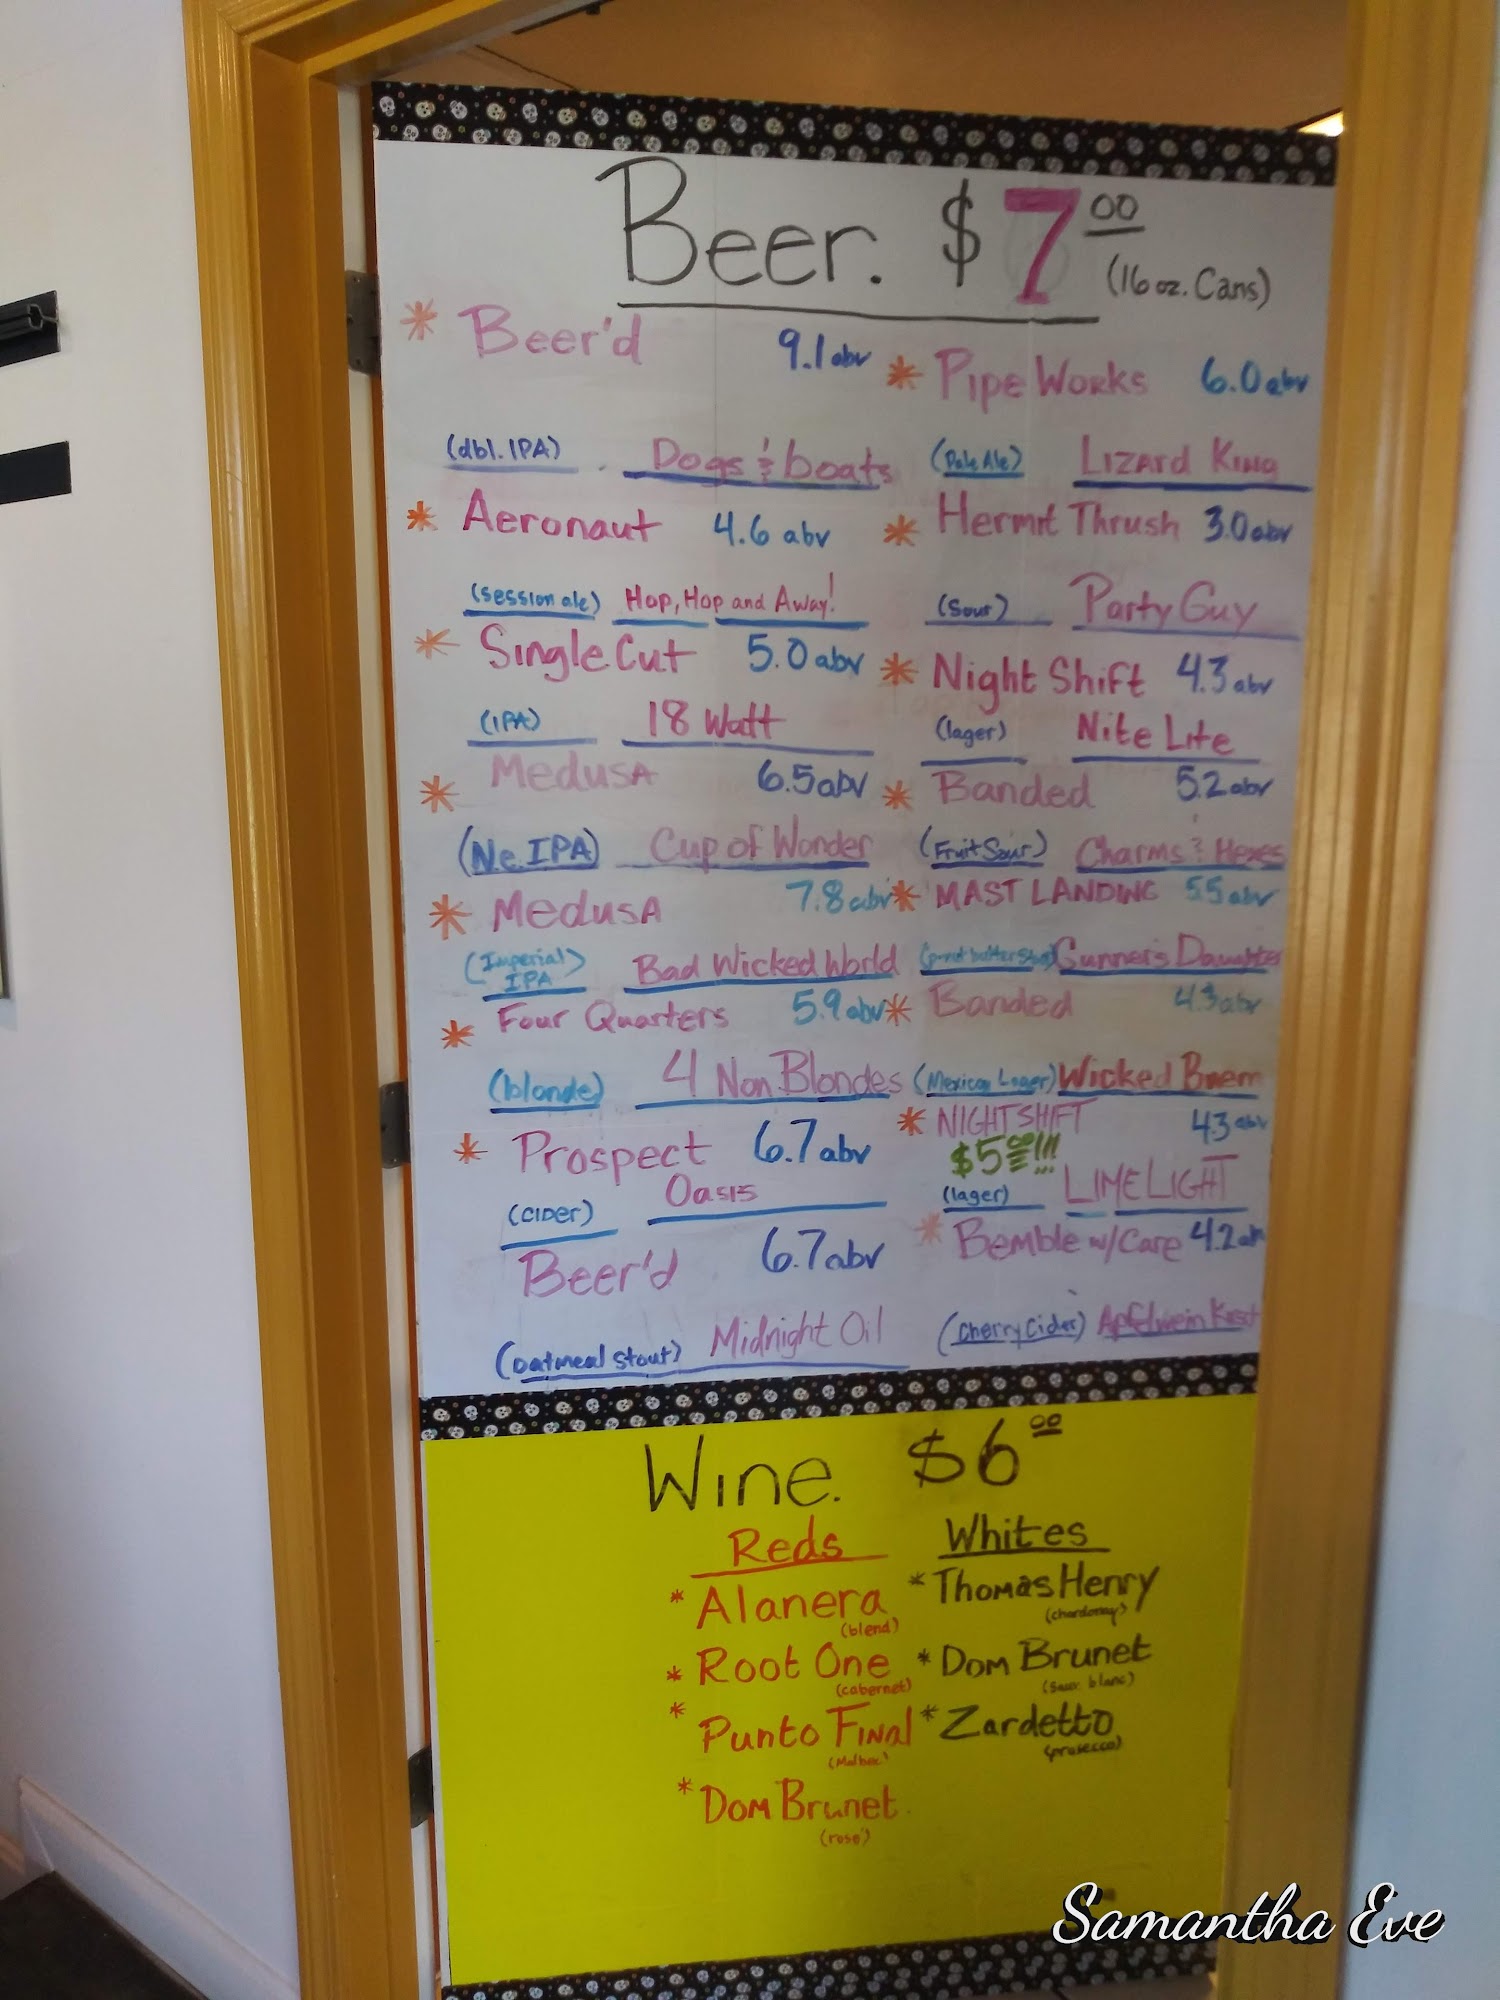 Beer. $7.00
(16 oz. Cans)
* Beer'd 9.1 abv
(dbl. IPA) Dogs & boats
* Aeronaut 4.6 abv
(session ale) Hop, Hop and Away!
* Single Cut 5.0 abv
(IPA) 18 Watt
* Medusa 6.5 abv
(N.e. IPA) Cup of Wonder
* Medusa 7.8 abv
(Imperial IPA) Bad Wicked World
* Four Quarters 5.9 abv
(blonde) 4 Non Blondes
* Prospect 6.7 abv
(CIDER) Oasis
Beer'd 6.7 abv
(oatmeal stout) Midnight Oil
* Pipe Works 6.0 abv
(Pale Ale) Lizard King
* Hermit Thrush 3.0 abv
(Sour) Party Guy
* Night Shift 4.3 abv
(lager) Nite Lite
* Banded 5.2 abv
(Fruit Sour) Charms & Hexes
* MAST LANDING 5.5 abv
Gunner's Daughter
* Banded 4.3 abv
(Mexican Lager) Wicked
* NIGHT SHIFT 4.3 abv
$5.00!!!
(lager) LIMELIGHT
* Bemble w/ Care 4.2
(Cherry Cider) Apfelwein
Wine. $6.00
Reds
* Alanera
(blend)
* Root One
(cabernet)
* Punto Final
(Malbec)
* Dom Brunet
(rosé)
Whites
* Thomas Henry
(chardonnay)
* Dom Brunet
(sauv. blanc)
* Zardetto
(prosecco)
Samantha Eve